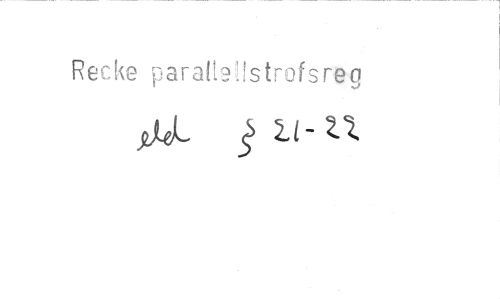 Recke parallellstrofsreg
eld § 21-22